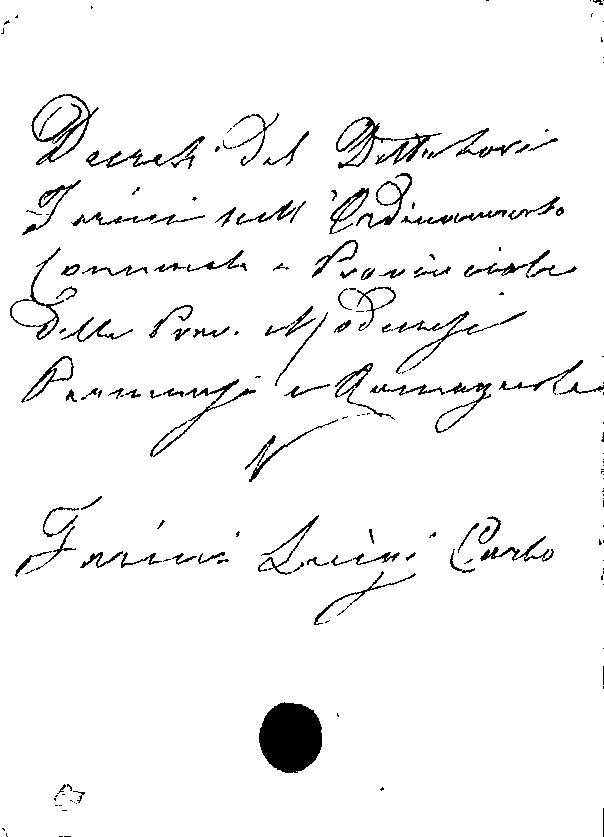 Decreti del Dittatore
Farini sull'Ordinamento
Comunale e Provinciale
delle Prov. Modenesi
Parmensi e Romagnole
Farini Luigi Carlo